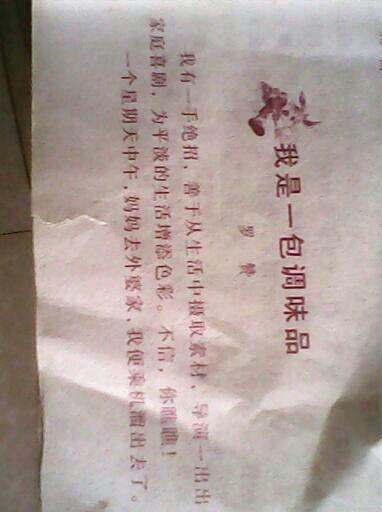 我是一包调味品
罗赞
我有一手绝招，善于从生活中摄取素材，导演一出出
家庭喜剧，为平淡的生活增添色彩。不信，你瞧瞧！
一个星期天中午，妈妈去外婆家，我便乘机溜出去了。